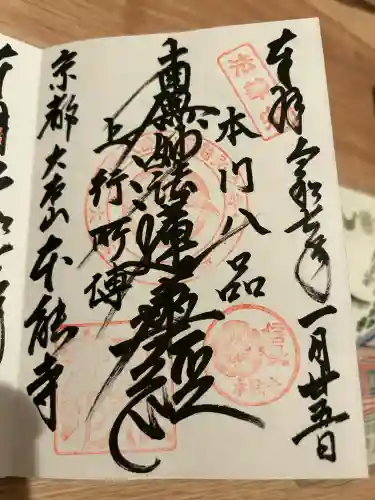 奉拝 令和七年 一月廿五日
本門八品
南無妙法蓮華経
上行所傳
京都 大本山 本能寺